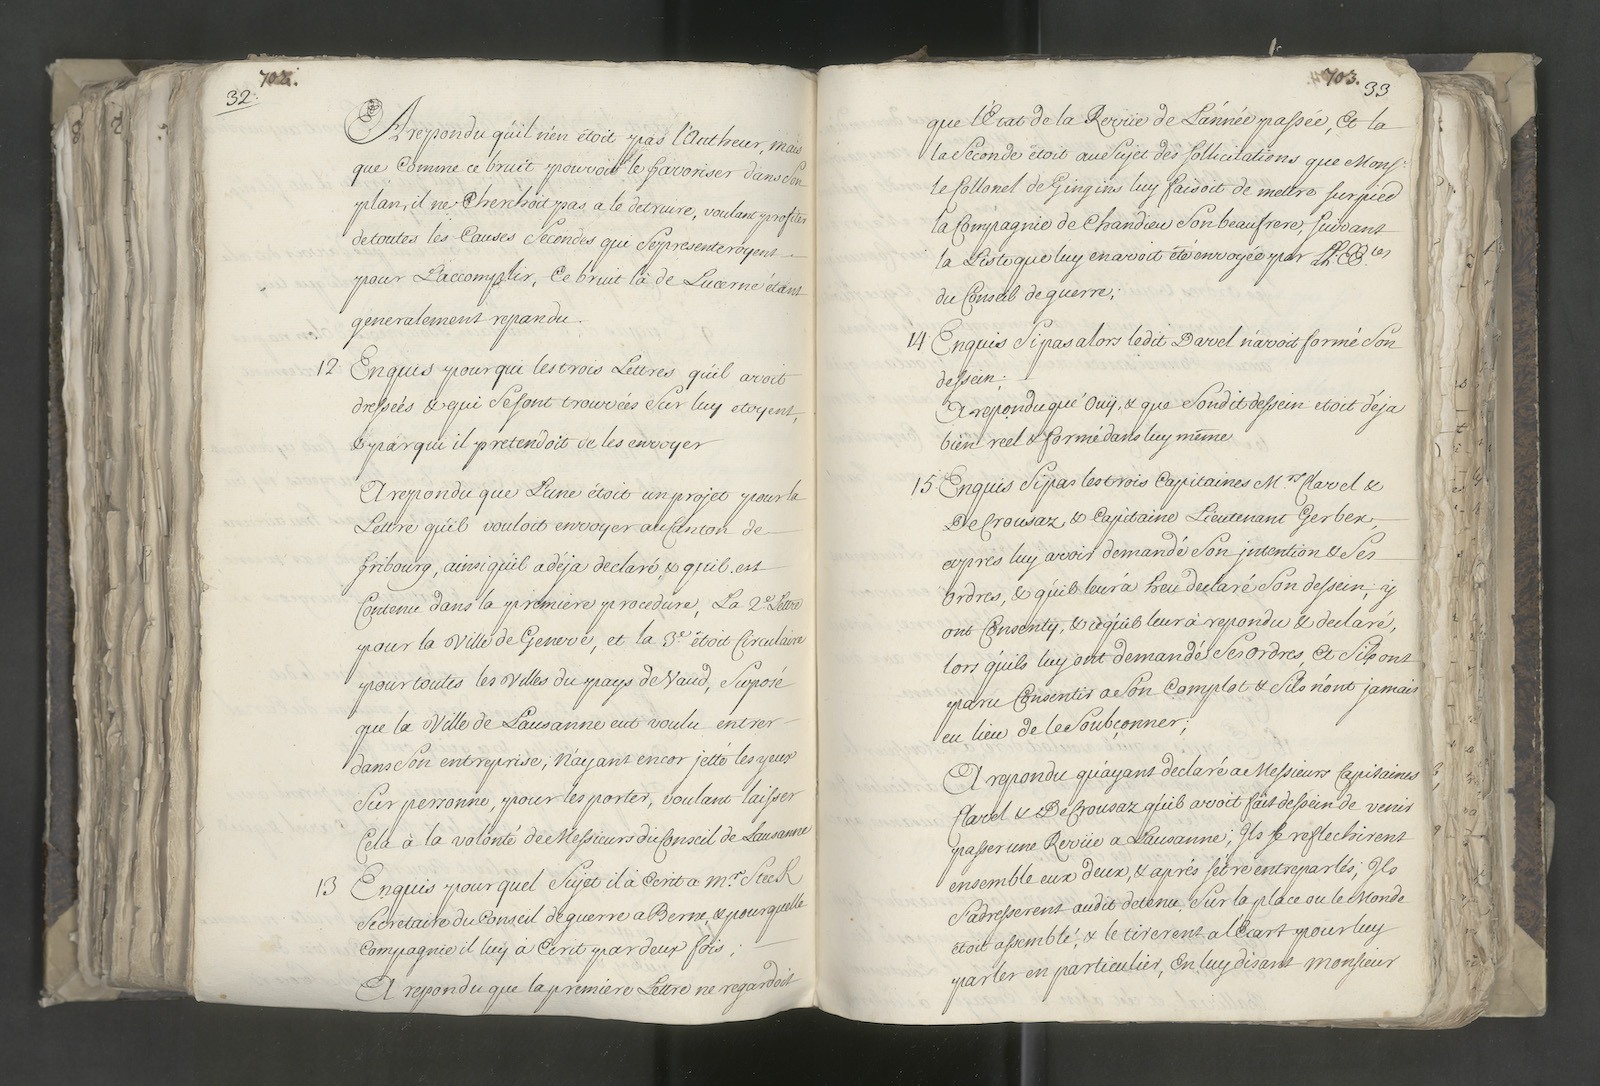 702.
32.
A repondu qu'il n'en étoit pas l'Autheur, mais
que Comme ce bruit pouvoit le favoriser dans Son
plan, il ne Cherchoit pas a le detruire, voulant profiter
de toutes les Causes Secondes qui Se presenteroyent
pour L'accomplir, Ce bruit là de Lucerne étant
generalement repandu.
12 Enquis pour qui les trois Lettres qu'il avoit
dressées & qui Se sont trouvées Sur luy etoyent,
& par qui il pretendoit de les envoyer
A repondu que L'une étoit un projet pour la
Lettre qu'il vouloit envoyer au Canton de
fribourg, ainsi qu'il a déja declaré, & qu'il est
Contenu dans la premiere procedure, La 2e. Lettre
pour la Ville de Geneve, et la 3e. étoit Circulaire
pour toutes les Villes du pays de Vaud, Suposé
que la Ville de Lausanne eut voulu entrer
dans Son entreprise, N'ayant encor jetté les yeux
Sur personne, pour les porter, voulant laisser
Cela à la volonté de Messieurs du Conseil de Lausanne
13 Enquis pour quel Sujet il à Ecrit a Mr. Steck
Secretaire du Conseil de guerre a Berne, & pour quelle
Compagnie il luy à Ecrit par deux fois;
A repondu que la premiere Lettre ne regardoit
703.
33
que l'Etat de la Revüe de L'année passée, Et la
la Seconde étoit au Sujet des Sollicitations que Mons:
le Collonel de Gingins luy faisoit de mettre sur pied
la Compagnie de Chandieu Son beaufrere, Suivant
la Liste que luy en avoit été envoyée par
du Conseil de guerre;
14 Enquis Si pas alors ledit Davel n'avoit formé Son
dessein;
A repondu que Ouÿ, & que Sondit dessein etoit déja
bien reel & formé dans luy même
15 Enquis Si pas les trois Capitaines Mrs Clavel &
De Crousaz, & Capitaine Lieutenant Gerbex,
apres luy avoir demandé Son intention & Ses
Ordres, & qu'il leur a heu declaré Son dessein, y
ont Consenty, & ce qu'il leur à repondu & declaré,
lors qu'ils luy ont demandé Ses Ordres, Et S'ils ont
paru Consentir a Son Complot & S'ils n'ont jamais
eu lieu de le Soubçonner;
A repondu qu'ayant declaré a Messieurs Capitaines
Clavel & De Crousaz qu'il avoit fait dessein de venir
passer une Revüe a Lausanne, Ils se reflechirent
ensemble eux deux, & aprés s'etre entreparlés, Ils
S'adresserent audit detenu, Sur la place ou le Monde
étoit assemblé, & le tirerent a l'Ecart pour luy
parler en particulier, En luy disant Monsieur